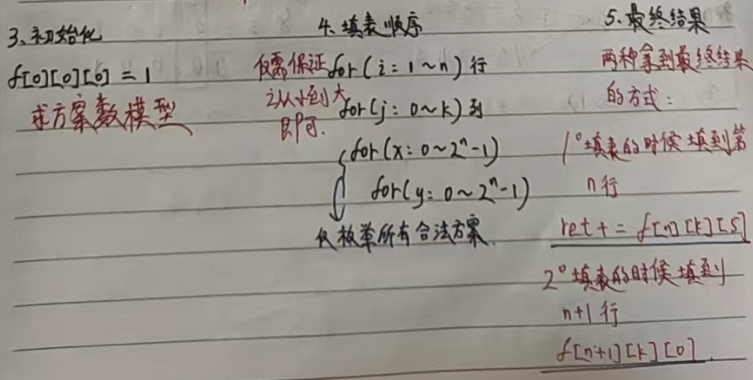 3. 初始化
f[0][0][0] = 1
求方案数模型
4. 填表顺序
仅需保证 for(i: 1~n) 行
i从小到大 for(j: 0~k) 列
即可.
for(x: 0~2ⁿ-1)
for(y: 0~2ⁿ-1)
仅枚举所有合法方案.
5. 最终结果
两种拿到最终结果
的方式:
1° 填表的时候填到第
n行
ret += f[n][k][s]
2° 填表的时候填到
n+1行
f[n+1][k][0].